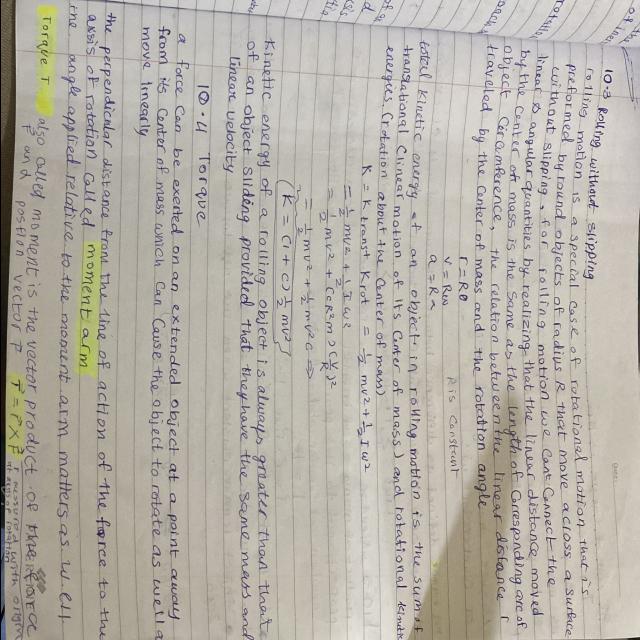 10.3 Rolling without slipping
rolling motion is a special case of rotational motion that is
preformed by round objects of radius R that move across a surface
without slipping, for rolling motion we can connect the
linear & angular quantities by realizing that the linear distance moved
by the center of mass is the same as the length of corresponding arc of
object circumference, the relation between the linear distance r
traveled by the center of mass and the rotation angle
r = Rθ
v = Rω
a = Rα
R is constant
total kinetic energy of an object in rolling motion is the sum of
translational (linear motion of its center of mass) and rotational kinetic
energies (rotation about the center of mass)
K = K trans + K rot = ½ mv² + ½ I ω²
= ½ mv² + ½ I ω²
= ½ mv² + ½ (cR²m)(v/R)²
= ½ mv² + ½ mv² c ⇒
K = (1+c) ½ mv²
Kinetic energy of a rolling object is always greater than that
of an object sliding provided that they have the same mass and
linear velocity
10.4 Torque
a force can be exerted on an extended object at a point away
from its center of mass which can cause the object to rotate as well a
move linearly
the perpendicular distance from the line of action of the force to the
axis of rotation called moment arm
the angle applied relative to the moment arm matters as well
Torque T also called moment is the vector product of force
F and postion vector r T = r × F
r measured with origin
at axis of rotation